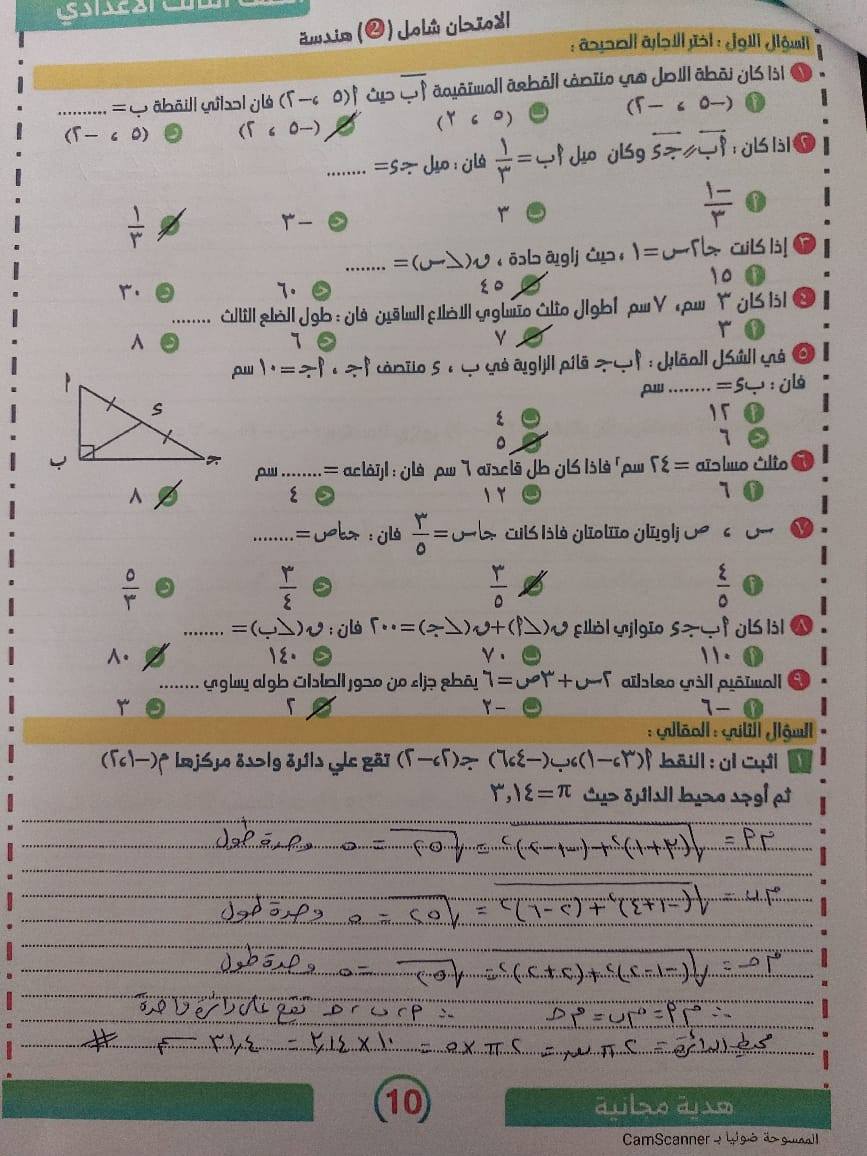 الامتحان شامل (2) هندسة
السؤال الاول : اختر الاجابة الصحيحة :
١ اذا كان نقطة الاصل هي منتصف القطعة المستقيمة أب حيث أ(٥ ، -٢) فان احداثي النقطة ب = ..........
أ (-٥ ، -٢) ب (٥ ، ٢) ج (-٥ ، ٢) د (٥ ، -٢)
٢ اذا كان : أب // جـ ء وكان ميل أب = ١/٣ فان : ميل جـ ء = ........
أ -١/٣ ب ٣ ج -٣ د ١/٣
٣ إذا كانت جا٢س = ١ ، حيث زاوية حادة ، ق(∠س) = ........
أ ١٥ ب ٤٥ ج ٦٠ د ٣٠
٤ اذا كان ٣ سم ، ٧ سم أطوال مثلث متساوي الاضلاع الساقين فان : طول الضلع الثالث ........
أ ٣ ب ٧ ج ٦ د ٨
٥ في الشكل المقابل : أ ب جـ قائم الزاوية في ب ، ء منتصف أجـ ، أجـ = ١٠ سم
فان : ب ء = ........ سم
أ ١٢ ب ٤
ج ٦ د ٥
أ
ء
ب
جـ
٦ مثلث مساحته = ٢٤ سم٢ فاذا كان طل قاعدته ٦ سم فان : ارتفاعه = ........ سم
أ ٦ ب ١٢ ج ٤ د ٨
٧ س ، ص زاويتان متتامتان فاذا كانت جاس = ٣/٥ فان : جتاص = ........
أ ٤/٥ ب ٣/٥ ج ٣/٤ د ٥/٣
٨ اذا كان أ ب جـ ء متوازي اضلاع ق(∠أ)+ق(∠جـ) = ٢٠٠ فان : ق(∠ب) = ........
أ ١١٠ ب ٧٠ ج ١٤٠ د ٨٠
٩ المستقيم الذي معادلته ٢س+٣ص=٦ يقطع جزاء من محور الصادات طوله يساوي ........
أ -٦ ب -٢ ج ٢ د ٣
السؤال الثاني : المقالي :
١ اثبت ان : النقط أ(٣،-١) ، ب(-٤،٦) جـ(٢،-٢) تقع علي دائرة واحدة مركزها م(-١،٢)
ثم أوجد محيط الدائرة حيث π = ٣,١٤
م أ = √(٣+١)٢+(-١-٢)٢ = √٢٥ = ٥ وحدة طول
م ب = √(-١+٤)٢+(٢-٦)٢ = √٢٥ = ٥ وحدة طول
م جـ = √(-١-٢)٢+(٢+٢)٢ = √٢٥ = ٥ وحدة طول
∴ م أ = م ب = م جـ ∴ أ ، ب ، جـ تقع على دائرة واحدة
محيط الدائرة = ٢ π نق = ٢ π × ٥ = ١٠ × ٣,١٤ = ٣١,٤ سم #
هدية مجانية
10
الممسوحة ضوئيا بـ CamScanner